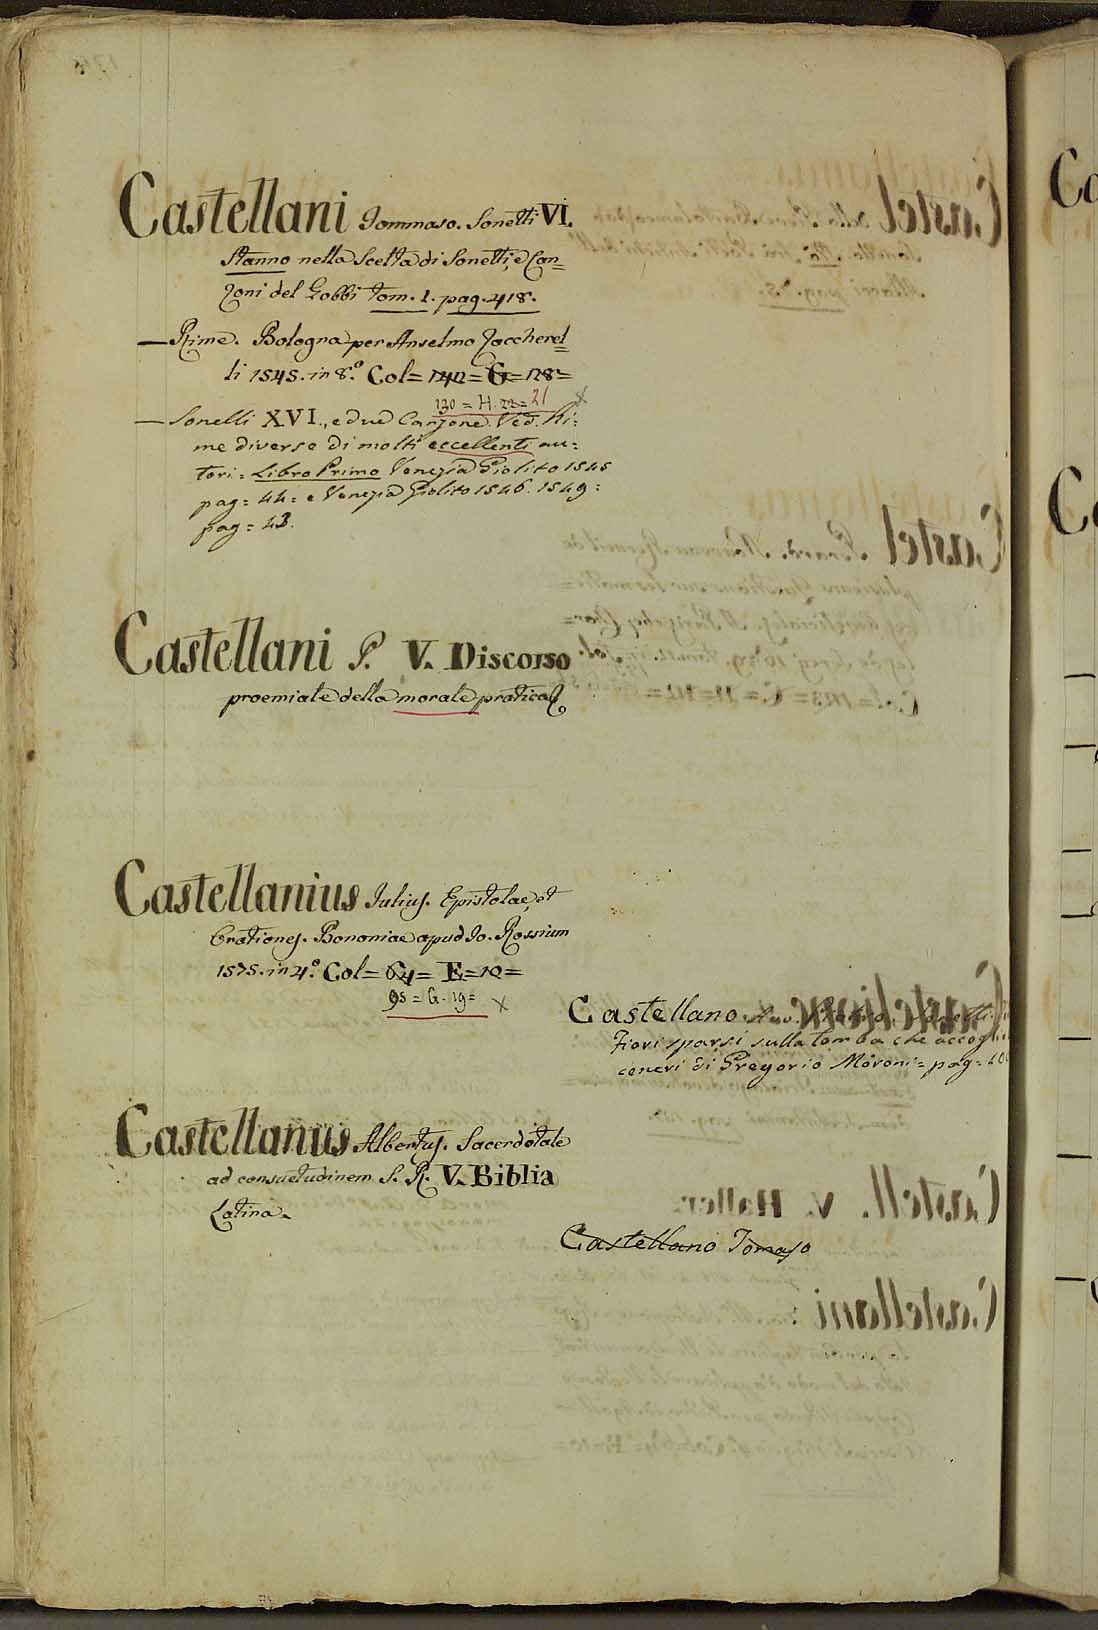 Castellani Tommaso. Sonetti VI.
Stanno nella Scelta di Sonetti, e Can=
zoni del Gobbi tom. 1. pag. 418.
— Rime. Bologna per Anselmo Zaccherel=
li 1545. in 8.° Col= 142= G= 128=
130 = H. 22= 21 X
— Sonetti XVI., e due Canzone. Ved. Ri:
me diverse di molti eccellenti au:
tori = Libro Primo Venezia Giolito 1545
pag = 44 = e Venezia Giolito 1546. 1549 =
pag = 43.
Castellani P. V. Discorso
proemiale della morale pratica
Castellanius Iulius. Epistolae, et
Orationes. Bononiae apud Io. Rossium
1575. in 4.° Col= 64= E= 12=
95 = G. 19= X
Castellano
Fiori sparsi sulla tomba che accoglie
ceneri di Gregorio Moroni = pag =
Castellanus Albertus. Sacerdotale
ad consuetudinem S. R. V. Biblia
Latina.
Castellano Tomaso